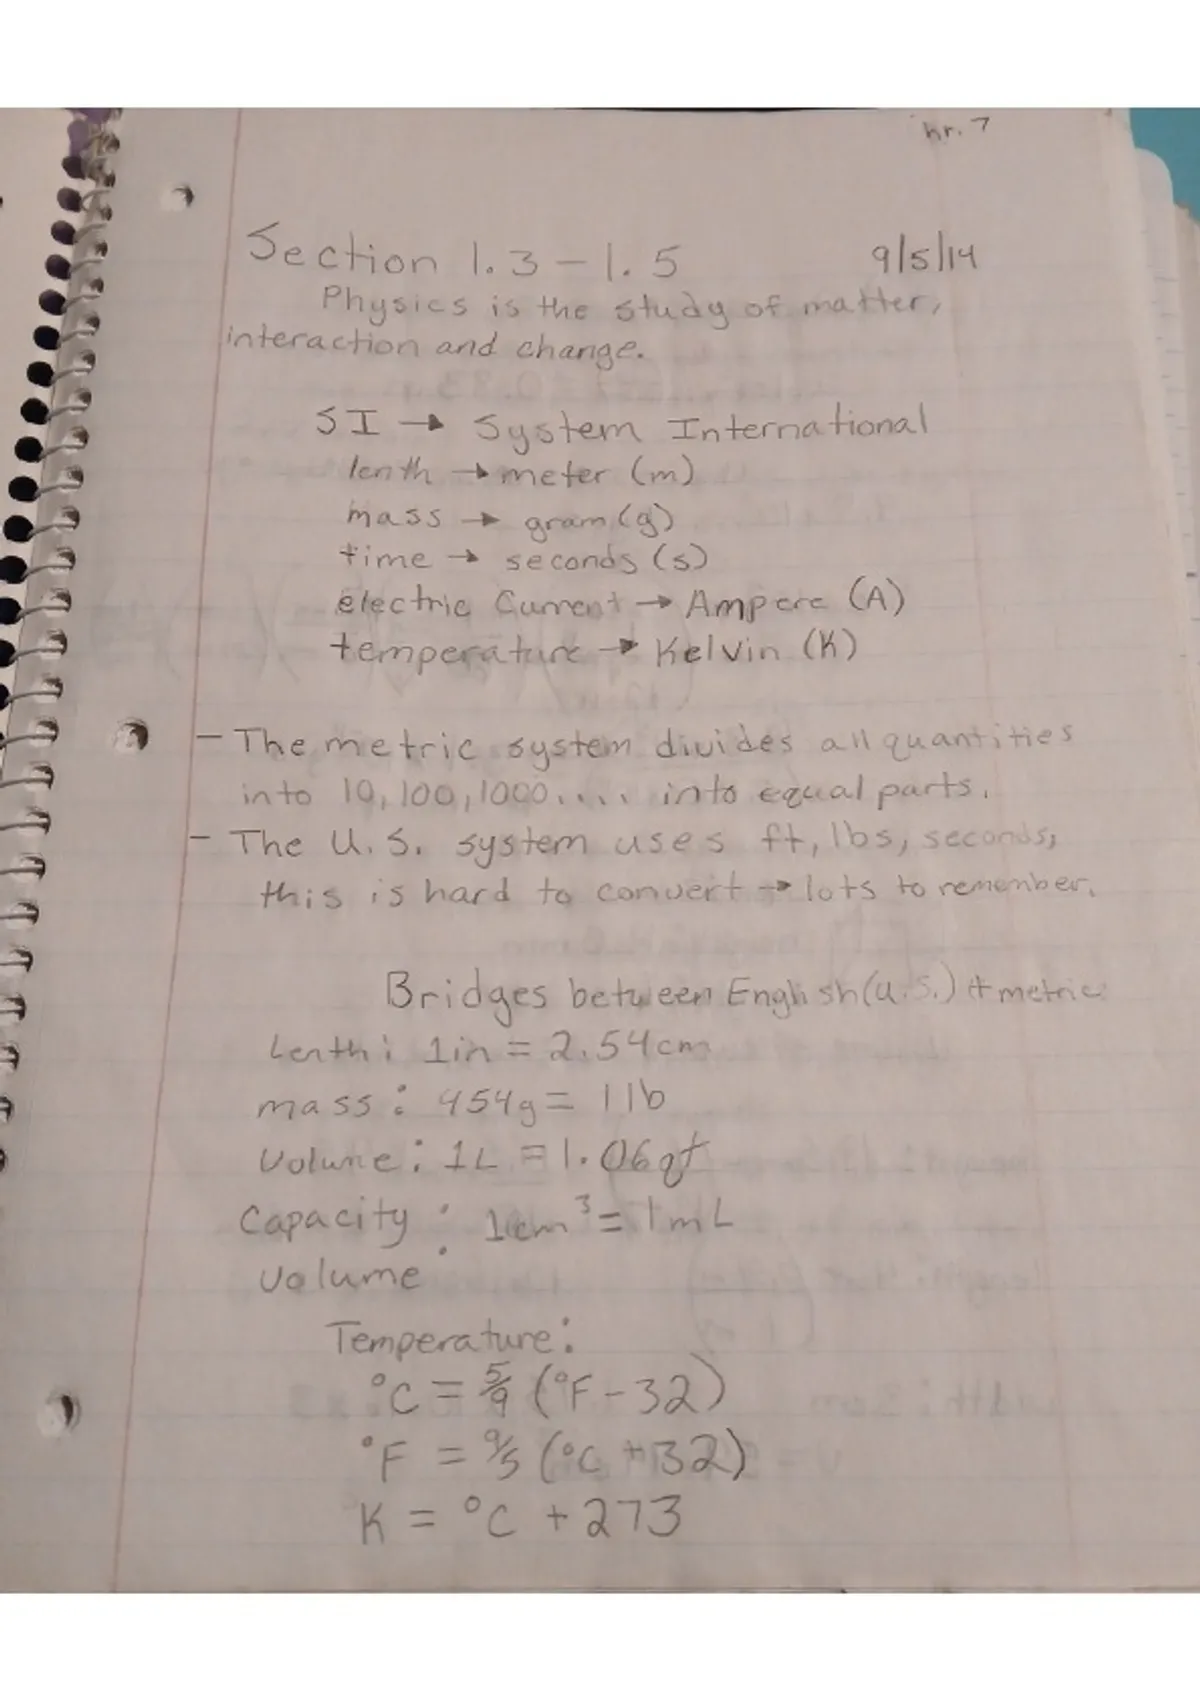 hr. 7
Section 1.3 – 1.5 9/5/14
Physics is the study of matter,
interaction and change.
SI → System International
lenth → meter (m)
mass → gram (g)
time → seconds (s)
electric Current → Ampere (A)
temperature → Kelvin (K)
– The metric system divides all quantities
into 10, 100, 1000..... into equal parts.
– The U.S. system uses ft, lbs, seconds,
this is hard to convert → lots to remember.
Bridges between English (U.S.) + metric
Lenth: 1in = 2.54cm
mass: 454g = 1 lb
Volume: 1L = 1.06qt
Capacity : 1cm³ = 1mL
Volume
Temperature:
°C = 5/9 (°F - 32)
°F = 9/5 (°C + 32)
K = °C + 273